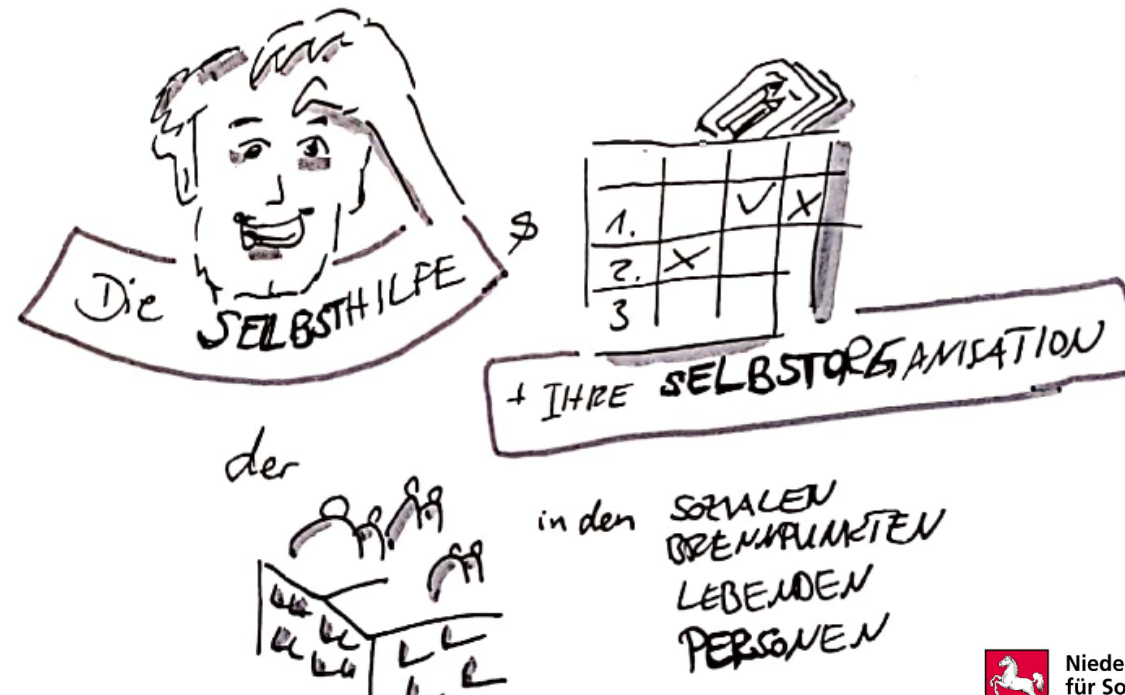 Die SELBSTHILFE
&
1.
2.
3
+ IHRE SELBSTORGANISATION
der
in den SOZIALEN
BRENNPUNKTEN
LEBENDEN
PERSONEN
Niede
für So